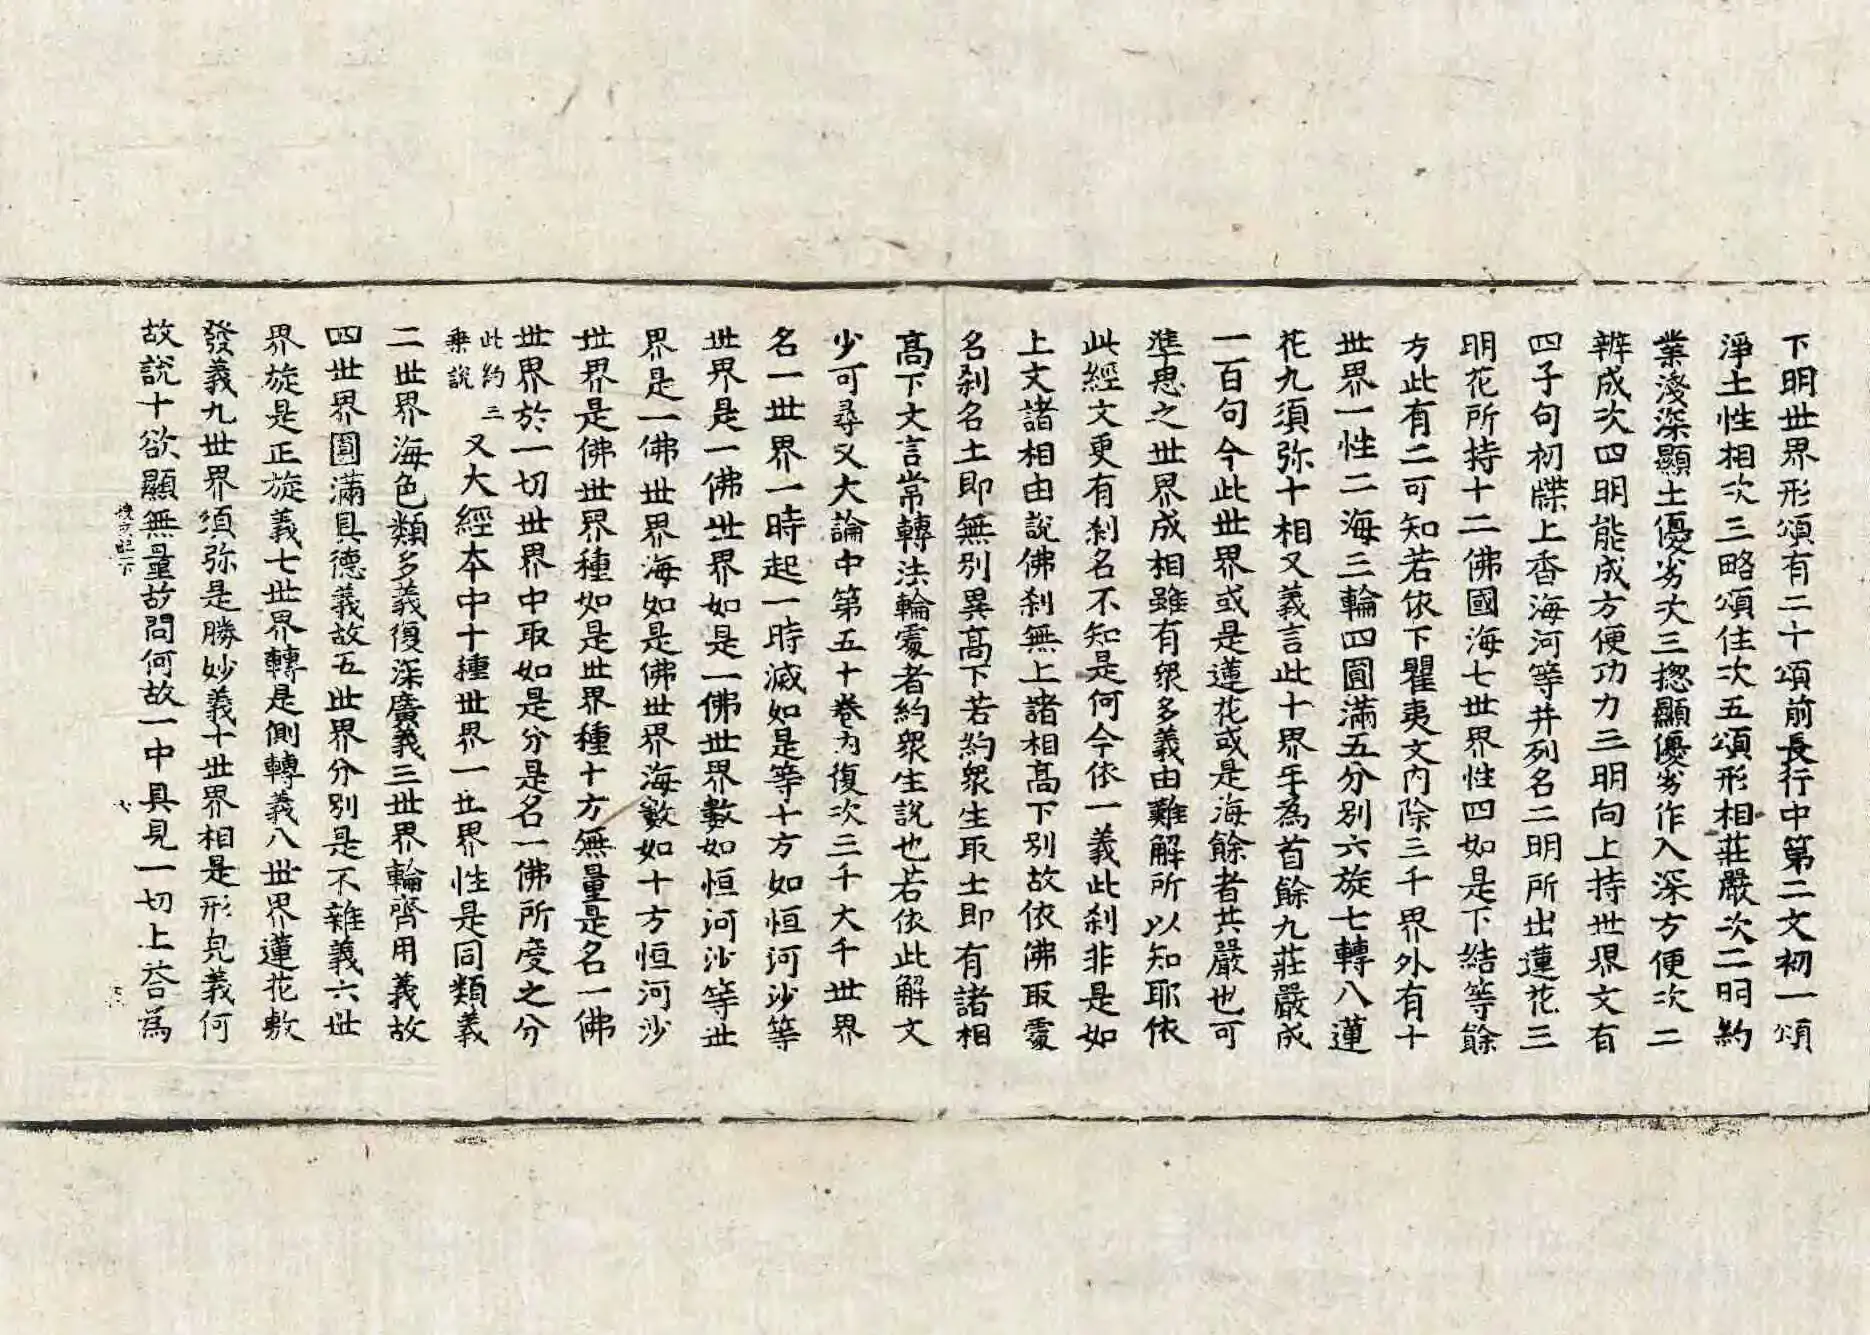 下明世界形頌有二十頌前長行中第二文初一頌
淨土性相次三略頌住次五頌形相莊嚴次二明約
業淺深顯土優劣次三揔顯優劣作入深方便次二
辨成次四明能成方便功力三明向上持世界文有
四子句初牒上香海河等并列名二明所出蓮花三
明花所持十二佛國海七世界性四如是下結等餘
方此有二可知若依下瞿夷文內除三千界外有十
世界一性二海三輪四圓滿五分別六旋七轉八蓮
花九須弥十相又義言此十界年為首餘九莊嚴成
一百句今此世界或是蓮花或是海餘者共嚴也可
準思之世界成相雖有衆多義由難解所以知耶依
此經文更有刹名不知是何今依一義此刹非是如
上文諸相由說佛刹無上諸相高下別故依佛取處
名刹名土即無別異高下若約衆生取土即有諸相
高下文言常轉法輪處者約衆生說也若依此解文
少可尋又大論中第五十卷內復次三千大千世界
名一世界一時起一時滅如是等十方如恒河沙等
世界是一佛世界如是一佛世界數如恒河沙等世
界是一佛世界海如是佛世界海數如十方恒河沙
世界是佛世界種如是世界種十方無量是名一佛
世界於一切世界中取如是分是名一佛所度之分
此約三
乗說
又大經本中十種世界一世界性是同類義
二世界海色類多義復深廣義三世界輪齊用義故
四世界圓滿具德義故五世界分別是不雜義六世
界旋是正旋義七世界轉是側轉義八世界蓮花敷
發義九世界須弥是勝妙義十世界相是形皃義何
故說十欲顯無量故問何故一中具見一切上荅為